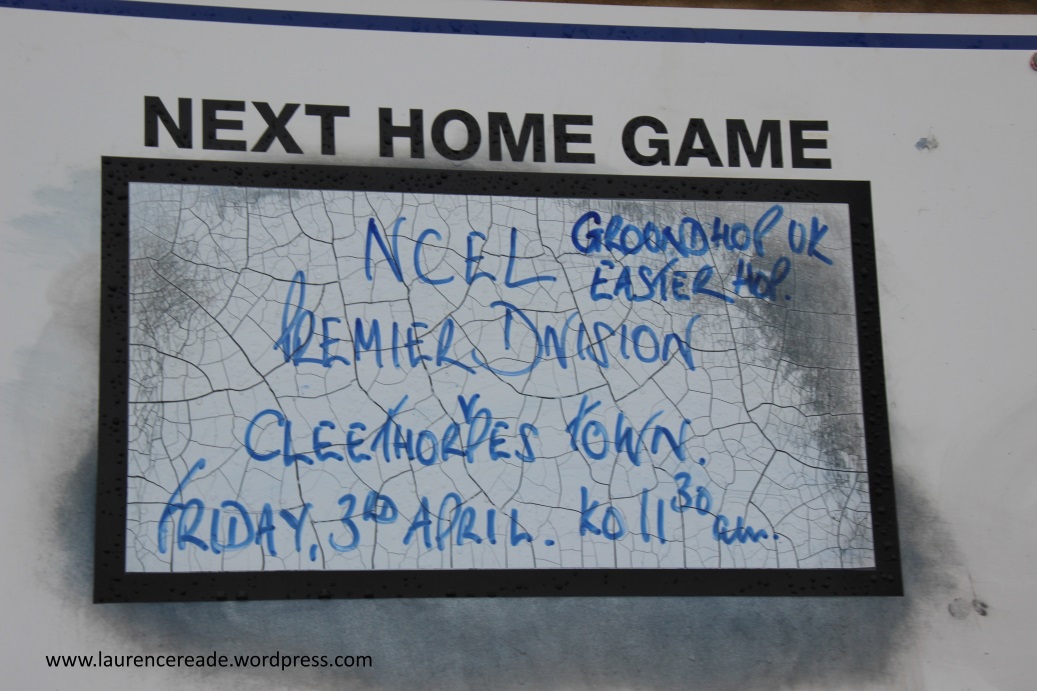 NEXT HOME GAME
NCEL GROUNDHOP UK
EASTER HOP.
PREMIER DIVISION
CLEETHORPES TOWN.
FRIDAY, 3RD APRIL. KO 11 30 am.
www.laurencereade.wordpress.com